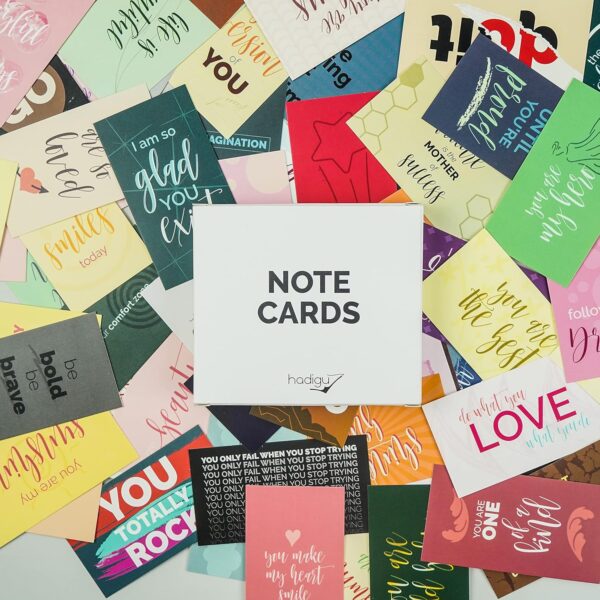 life is
beautiful
ersion
of
YOU
do it
UNTIL
YOU'RE
proud
GO
are so
loved
I am so
glad
YOU
exist
AGINATION
is the
MOTHER
of
success
you are
my hero
smiles
today
comfort zone
NOTE
CARDS
hadigu
you are
the best
follow
be
bold
be
brave
beauty
shine
do what you
LOVE
what you do
you are my
sunshine
YOU
TOTALLY
ROCK
YOU ONLY FAIL WHEN YOU STOP TRYING
YOU ONLY FAIL WHEN YOU STOP TRYING
YOU ONLY FAIL WHEN YOU STOP TRYING
YOU ONLY FAIL WHEN YOU STOP TRYING
YOU ONLY
YOU ONLY
YOU ONLY
YOU ARE
ONE
of a
kind
you make
my heart
smile
you are